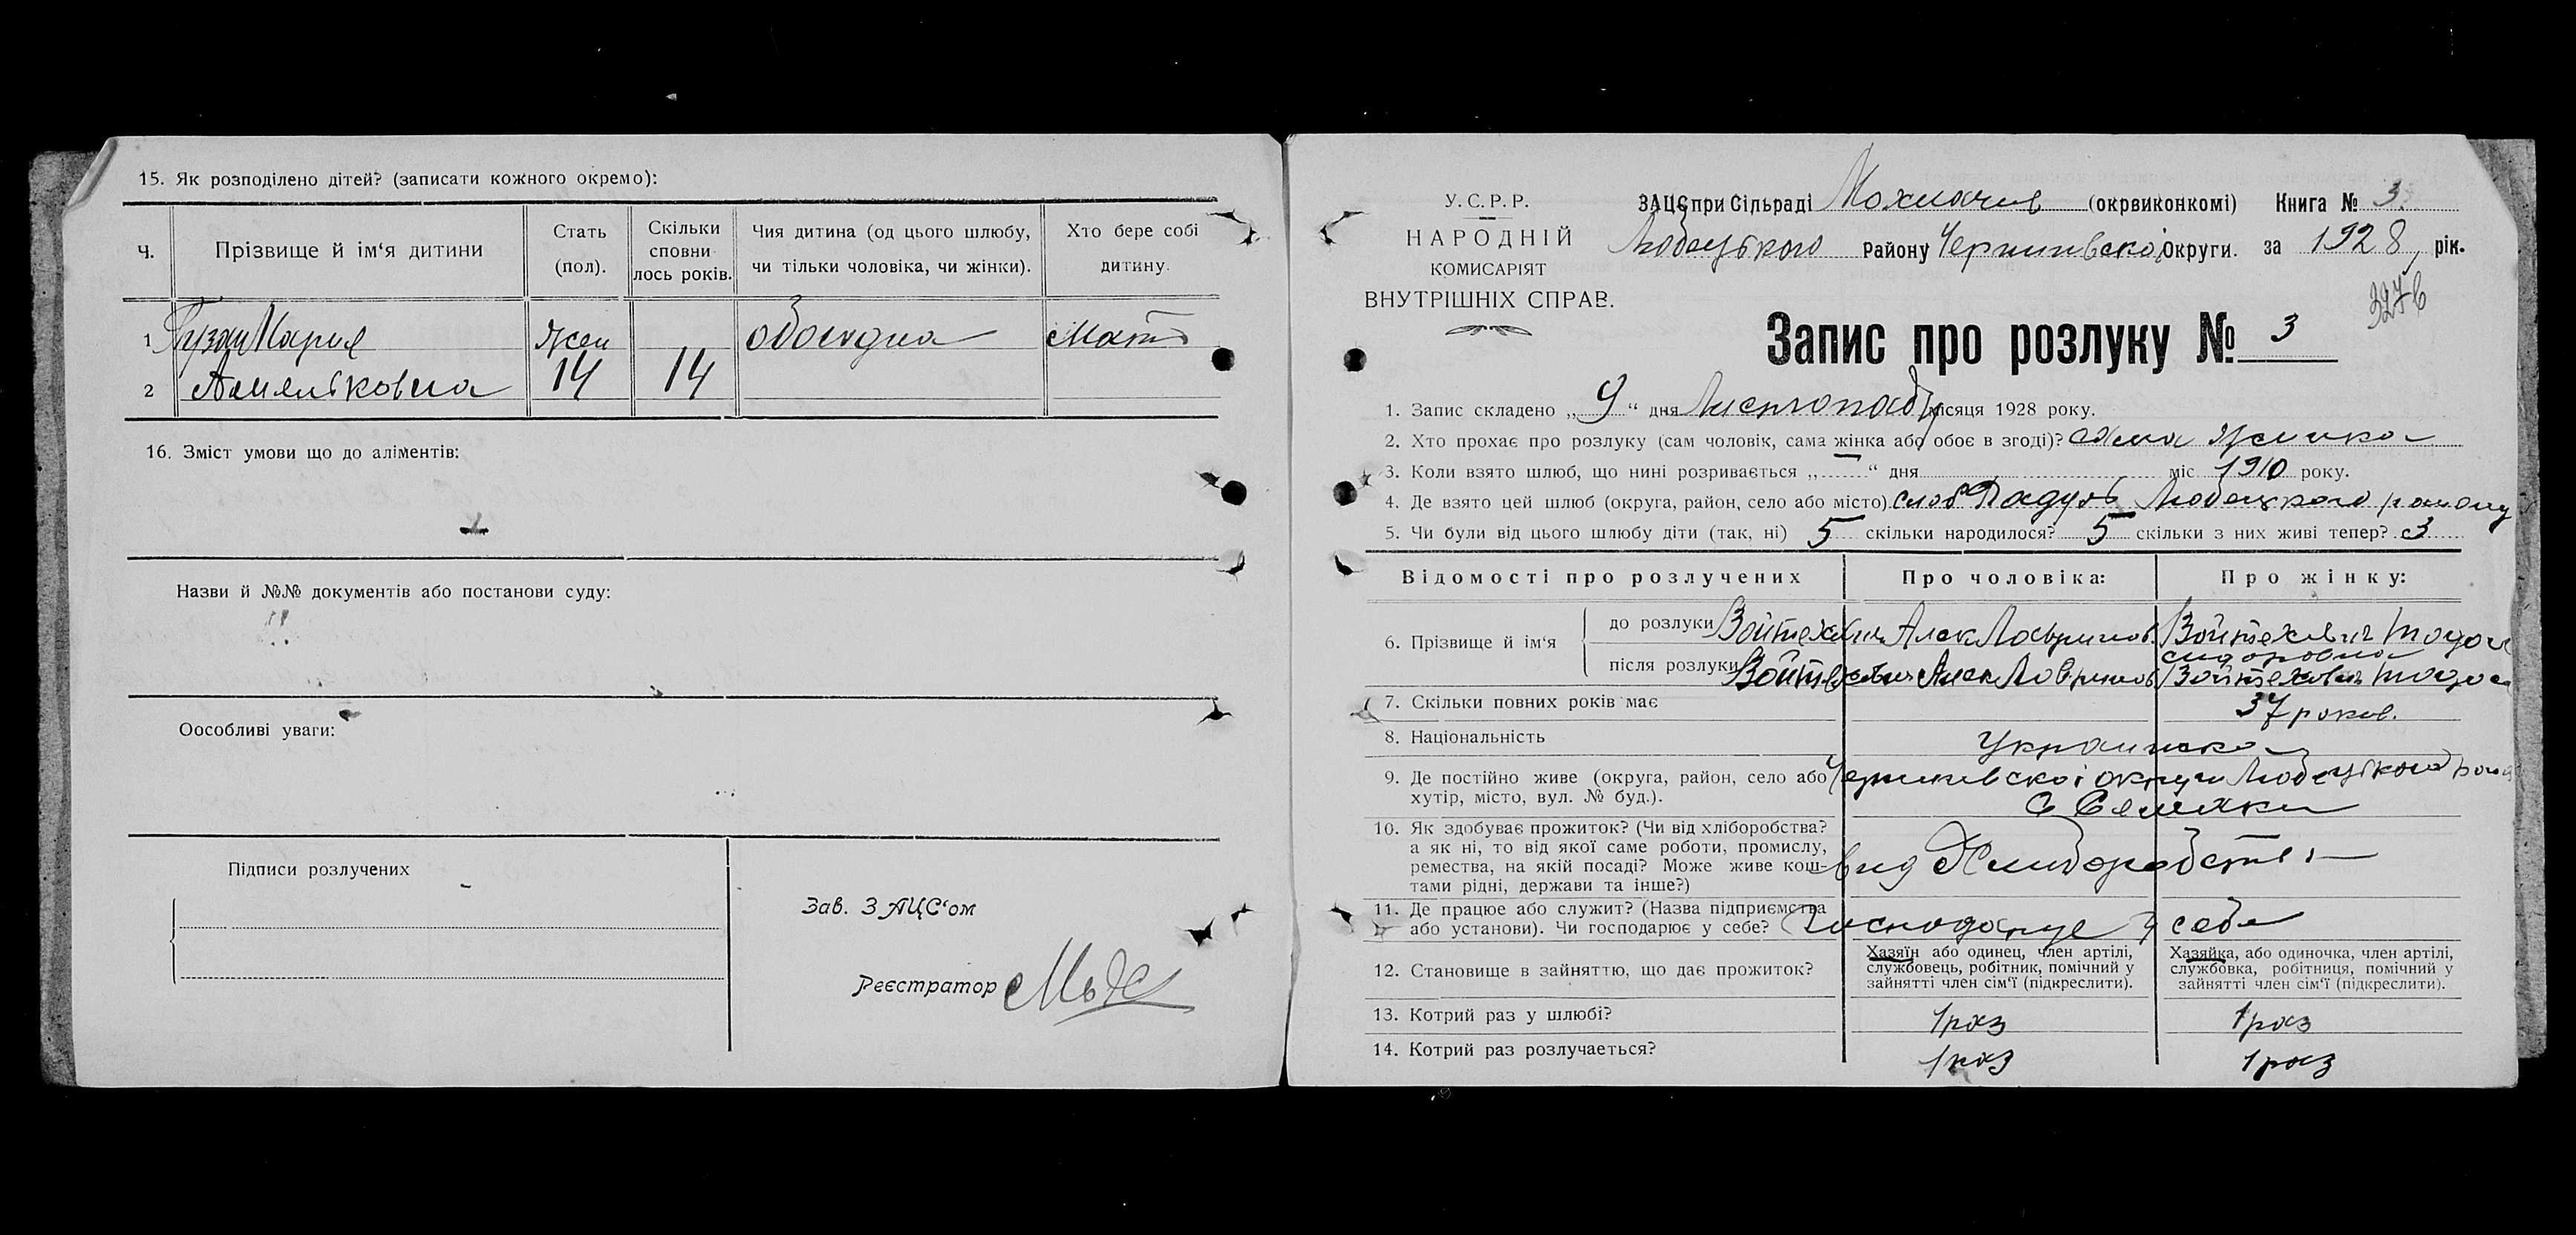 15. Як розподілено дітей? (записати кожного окремо):
Ч. Прізвище й ім‘я дитини Стать (пол). Скільки сповни- лось років. Чия дитина (од цього шлюбу, чи тільки чоловіка, чи жінки). Хто бере собі дитину.
1 Мария Жен Мать
2 14 14
16. Зміст умови що до аліментів:
Назви й №№ документів або постанови суду:
Оособливі уваги:
Підписи розлучених
Зав. ЗАЦС‘ом
Реєстратор
У.С.Р.Р.
НАРОДНІЙ
КОМИСАРІЯТ
ВНУТРІШНІХ СПРАВ.
ЗАЦС при Сільраді (окрвиконкомі) Книга № 3.
Любецького Району Чернигівської Округи. за 1928 рік.
327б
Запис про розлуку № 3
1. Запис складено „ 9 “ дня Листопаду місяця 1928 року.
2. Хто прохає про розлуку (сам чоловік, сама жінка або обоє в згоді)? сама жинка
3. Коли взято шлюб, що нині розривається „ — “ дня міс. 1910 року.
4. Де взято цей шлюб (округа, район, село або місто) слоб Радуль Любецкого району
5. Чи були від цього шлюбу діти (так, ні) 5 скільки народилося? 5 скільки з них живі тепер? 3
Відомості про розлучених Про чоловіка: Про жінку:
6. Прізвище й ім‘я
до розлуки Войтехович Алек Лавринов. Войтехович Тодося
сидоровна
після розлуки Войтехович Алек Лавринов Войтехович Тодося
7. Скільки повних років має 37 роков.
8. Національність Украинска
9. Де постійно живе (округа, район, село або хутір, місто, вул. № буд.). Чернигівскоі округи Любецького
10. Як здобуває прожиток? (Чи від хліборобства?
а як ні, то від якої саме роботи, промислу,
ремества, на якій посаді? Може живе кош-
тами рідні, держави та інше?) вид Хлиборобства
11. Де працює або служит? (Назва підприємства
або установи). Чи господарює у себе? Господарує у себе
12. Становище в зайняттю, що дає прожиток?
Хазяїн або одинец, член артілі, службовець, робітник, помічний у зайнятті член сім‘ї (підкреслити).
Хазяйка, або одиночка, член артілі, службовка, робітниця, помічний у зайнятті член сім‘ї (підкреслити).
13. Котрий раз у шлюбі? 1 раз 1 раз
14. Котрий раз розлучаеться? 1 раз 1 раз